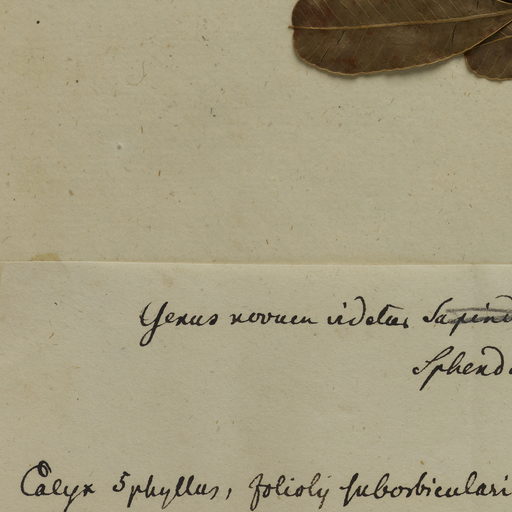 Genus novum videtur Sapind
Sphend
Calyx 5phyllus, foliolis suborbiculari